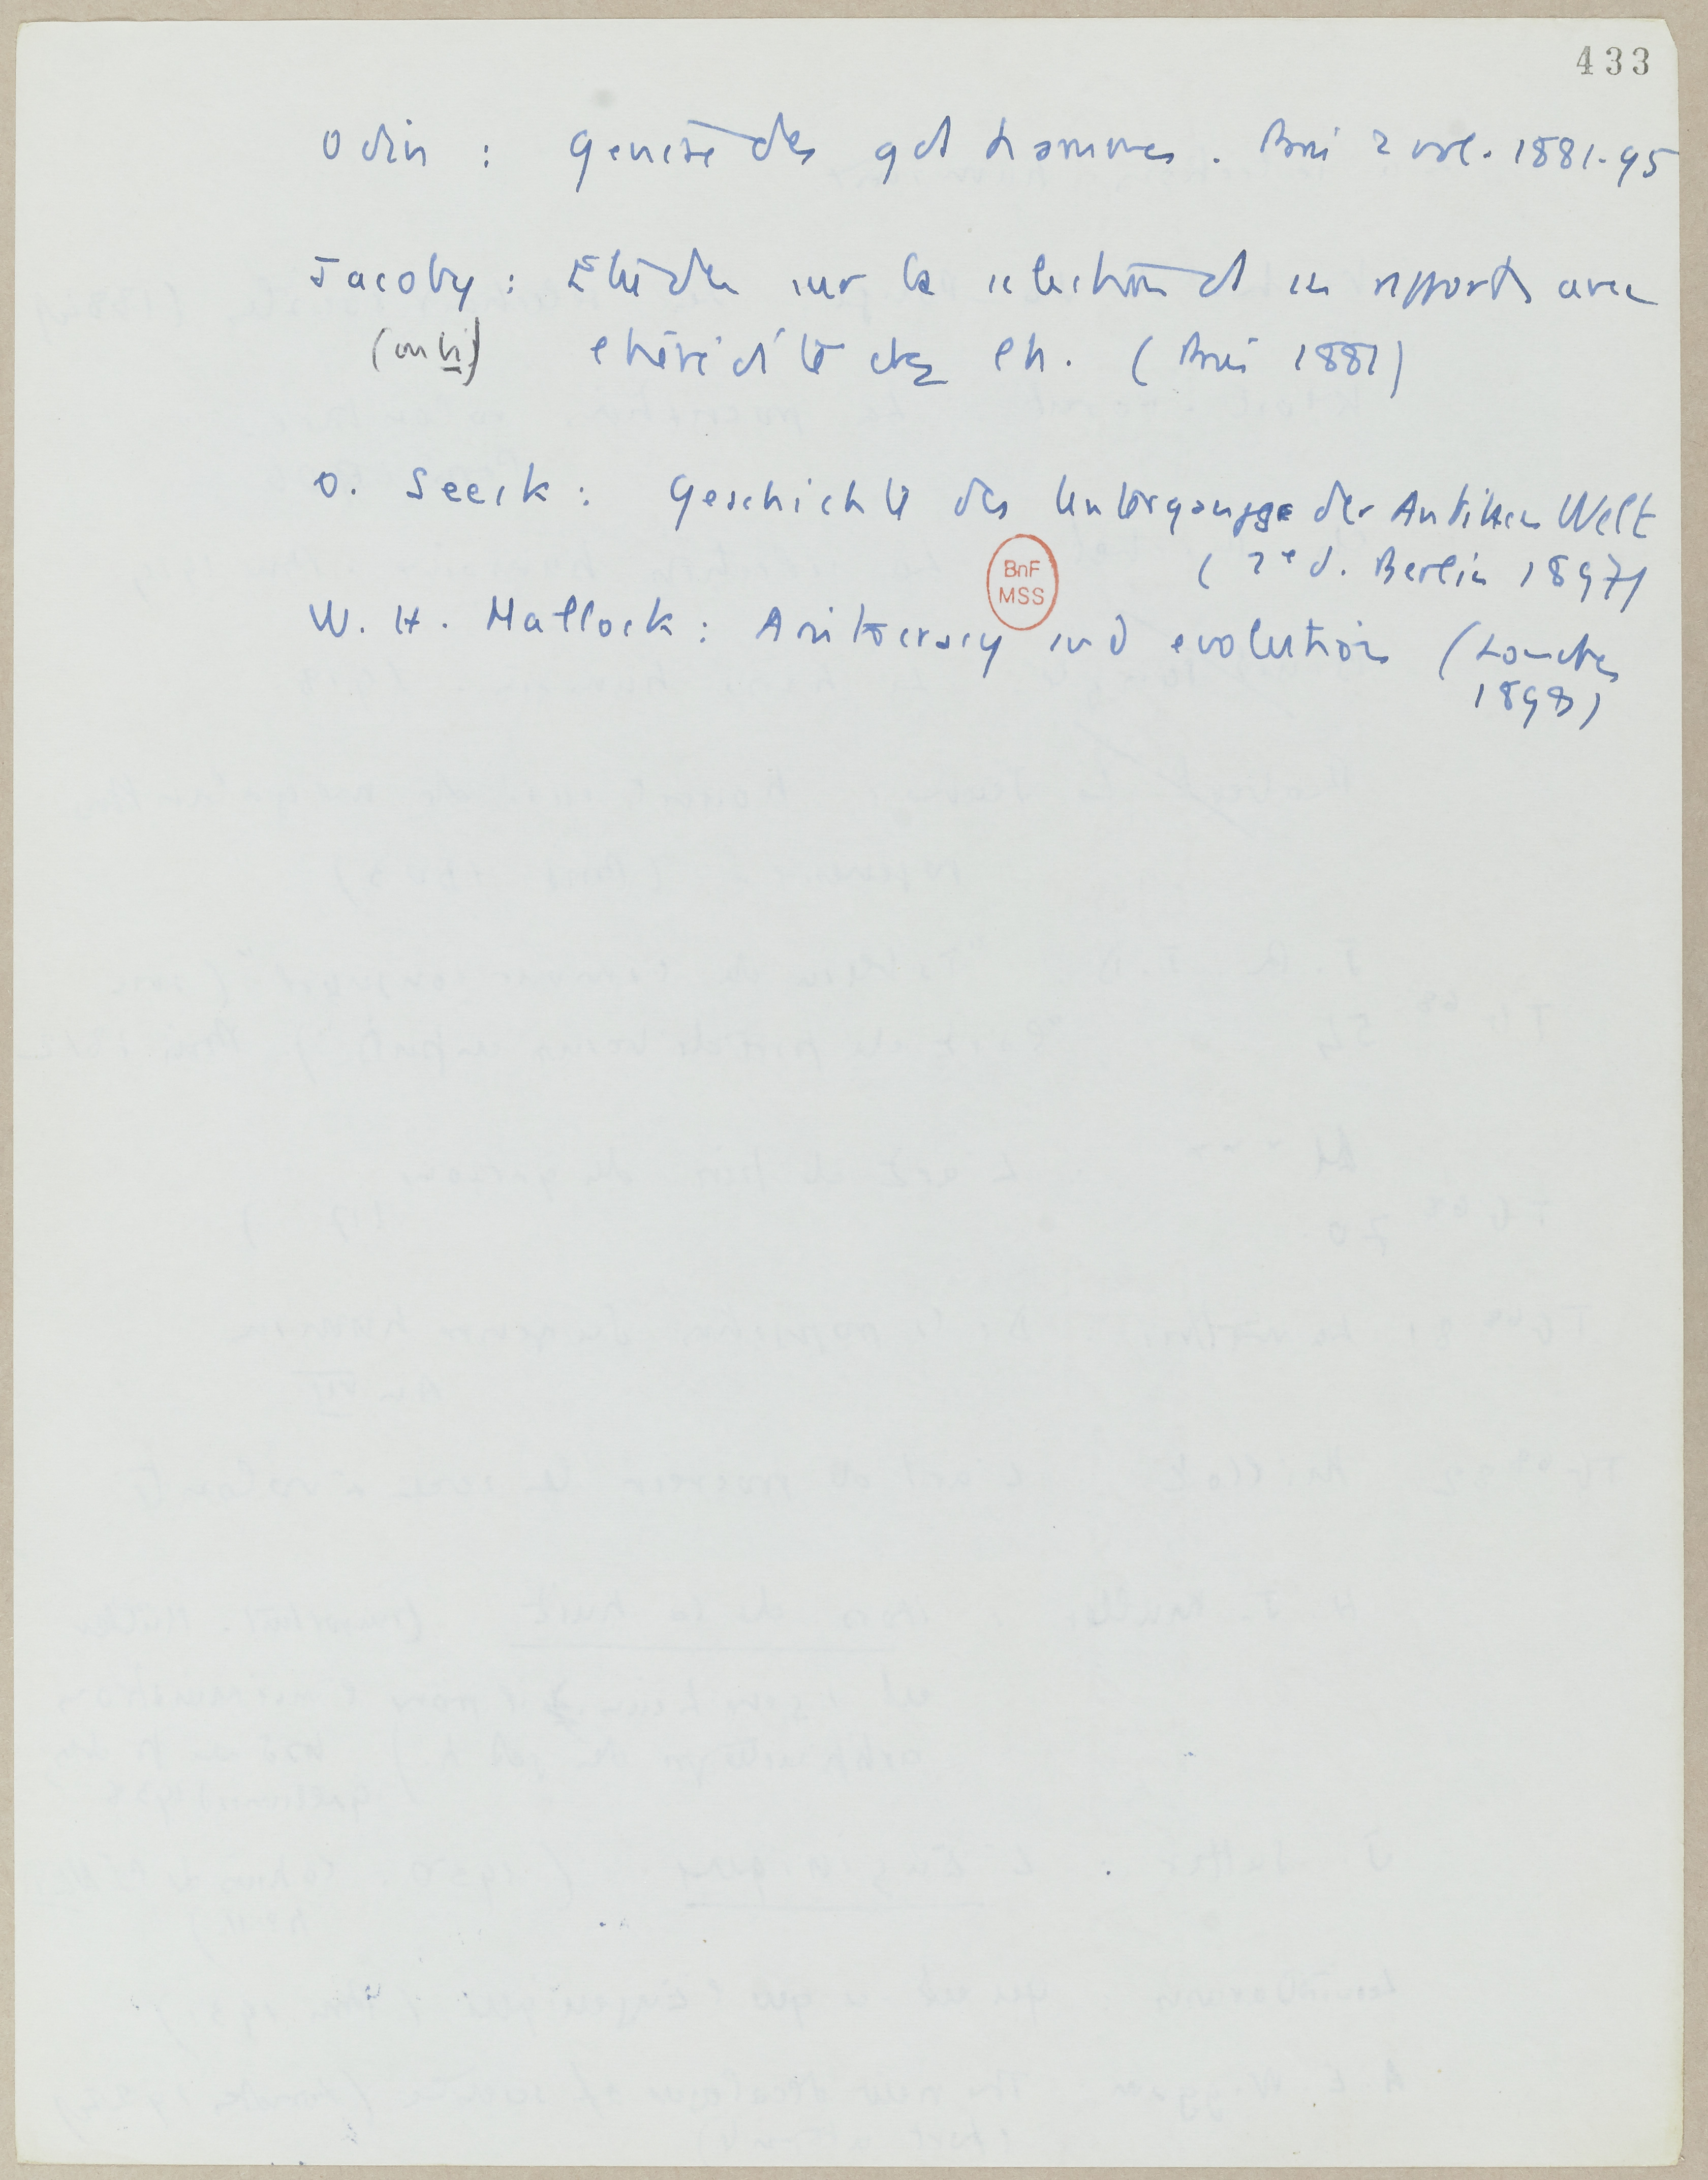 433
Odin : Genèse des gds hommes. Paris 2 vol. 1881-95
Jacoby : Études sur la sélection et ses rapports avec
l'hérédité chez l'h. (Paris 1881)
O. Seeck : Geschichte des Unterganges der Antiken Welt
(2e éd. Berlin 1897)
BnF
MSS
W. H. Mallock : Aristocracy and evolution (Londres
1898)